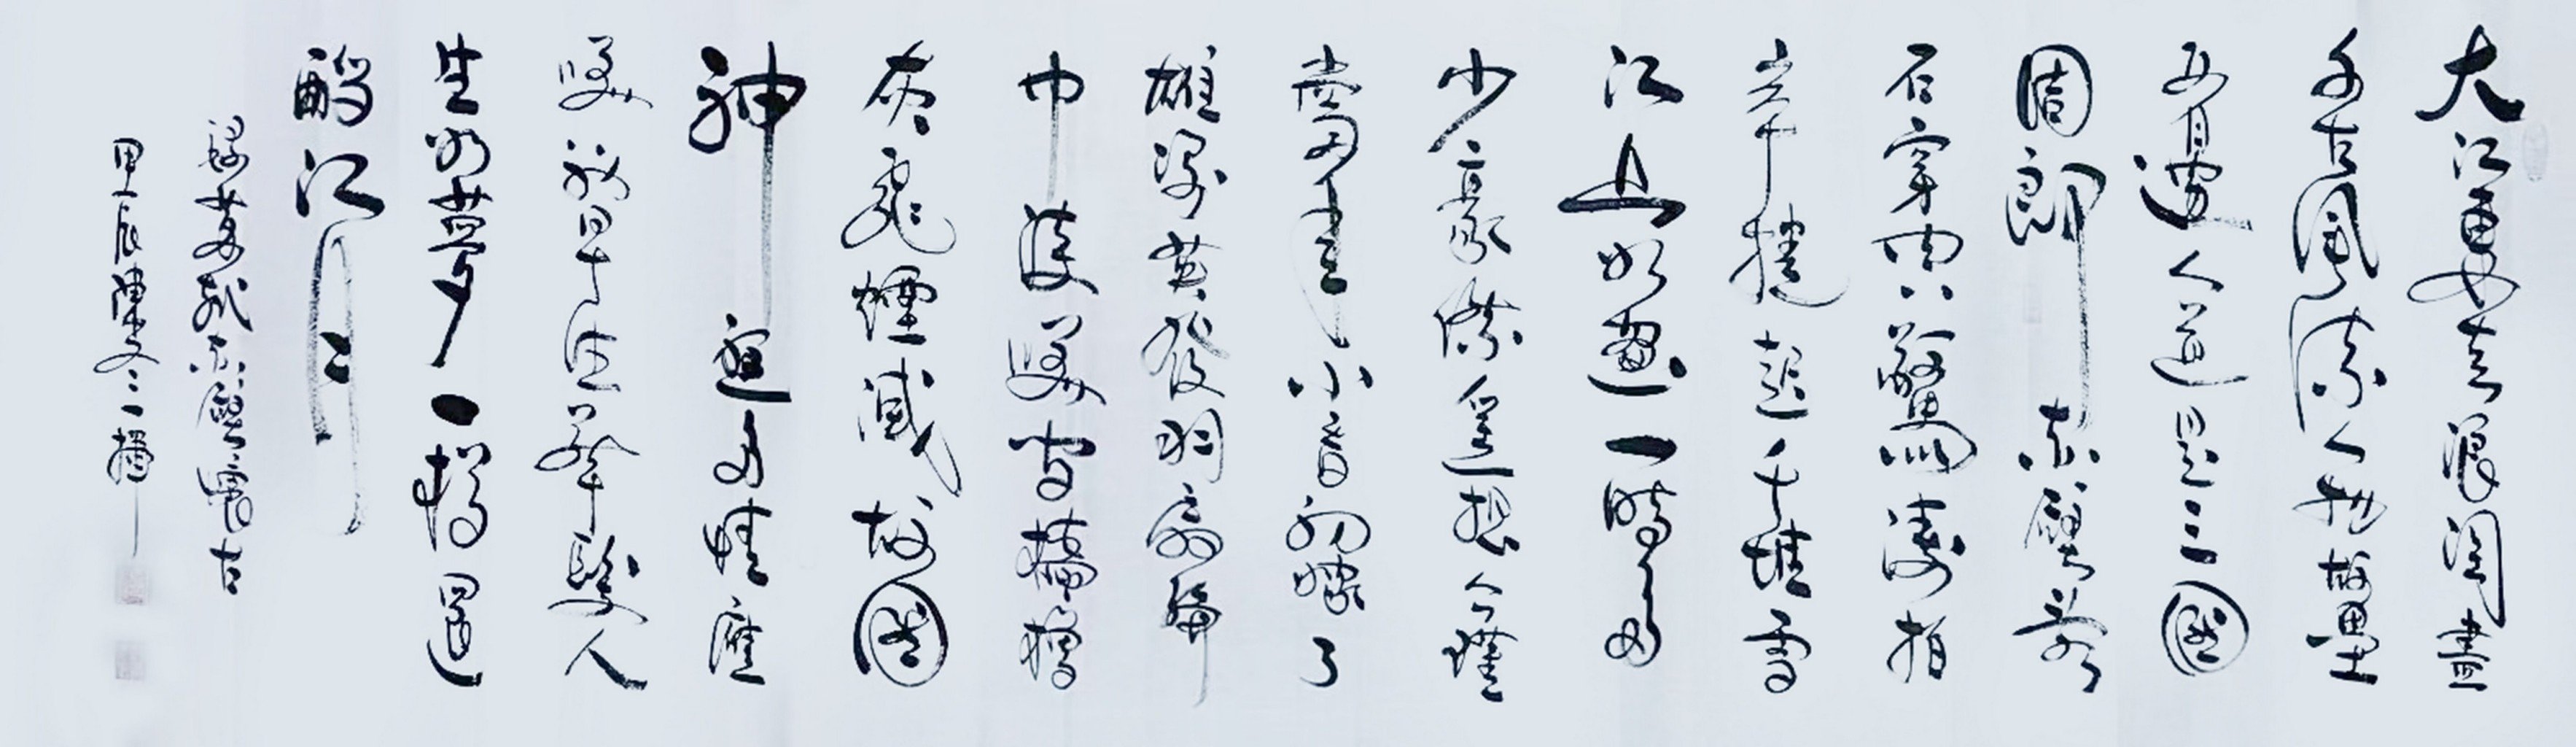 大江東去浪淘盡
千古風流人物故壘
西邊人道是三國
周郎赤壁亂
石穿空驚濤拍
岸捲起千堆雪
江山如畫一時多
少豪傑遙想公瑾
當年小喬初嫁了
雄姿英發羽扇綸
巾談笑間檣櫓
灰飛煙滅故國
神遊多情應
笑我早生華髮人
生如夢一樽還
酹江月
錄蘇軾赤壁懷古
甲辰陳冬